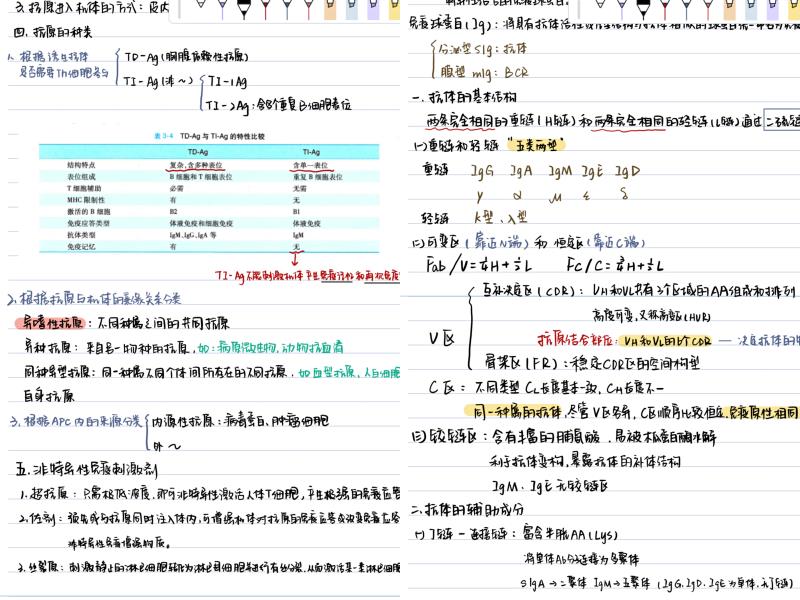 3. 抗原进入机体的方式：皮内
四. 抗原的种类
1. 根据诱生抗体是否需要Th细胞参与
TD-Ag(胸腺依赖性抗原)
TI-Ag(非~)
TI-1Ag
TI-2Ag：含多个重复B细胞表位
表 3-4 TD-Ag 与 TI-Ag 的特性比较
TD-Ag TI-Ag
结构特点 复杂,含多种表位 含单一表位
表位组成 B 细胞和 T 细胞表位 重复 B 细胞表位
T 细胞辅助 必需 无需
MHC 限制性 有 无
激活的 B 细胞 B2 B1
免疫应答类型 体液免疫和细胞免疫 体液免疫
抗体类型 IgM、IgG、IgA 等 IgM
免疫记忆 有 无
TI-Ag不能刺激机体产生免疫记忆和再次免疫
2. 根据抗原与机体的亲缘关系分类
异嗜性抗原：不同种属之间的共同抗原
异种抗原：来自另一物种的抗原,如:病原微生物,动物抗血清
同种异型抗原：同一种属不同个体间所存在的不同抗原,如血型抗原,人白细胞
自身抗原
3. 根据APC内的来源分类
内源性抗原：病毒蛋白、肿瘤细胞
外~
五. 非特异性免疫刺激剂
1. 超抗原：只需极低浓度,即可非特异性激活人体T细胞,产生极强的免疫应答
2. 佐剂：预先或与抗原同时注入体内,可增强机体对抗原的免疫应答或改变免疫应答
非特异性免疫增强物质。
3. 丝裂原：刺激静止的淋巴细胞转化为淋巴母细胞进行有丝分裂,从而激活某一类淋巴细胞
免疫球蛋白(Ig)：将具有抗体活性或化学结构与抗体相似的球蛋白统一命名为免疫
分泌型 sIg：抗体
膜型 mIg：BCR
一. 抗体的基本结构
两条完全相同的重链(H链)和两条完全相同的轻链(L链)通过二硫键
(一)重链和轻链 "五类两型"
重链 IgG IgA IgM IgE IgD
γ α μ ε δ
轻链 κ型、λ型
(二)可变区(靠近N端)和恒定区(靠近C端)
Fab/V=¼H+½L Fc/C=¾H+½L
V区
互补决定区(CDR)：VH和VL共有3个区域的AA组成和排列
高度可变,又称高变区(HVR)
抗原结合部位：VH和VL的6个CDR — 决定抗体的特
骨架区(FR)：稳定CDR区的空间构型
C区：不同类型CL长度基本一致,CH长度不一
同一种属的抗体,尽管V区各异,C区顺序比较恒定,免疫原性相同
(三)铰链区：含有丰富的脯氨酸,易被木瓜蛋白酶水解
利于抗体变构,暴露抗体的补体结构
IgM、IgE 无铰链区
二. 抗体的辅助成分
(一)J链－连接链：富含半胱AA(Lys)
将单体Ab分子连接为多聚体
SIgA→二聚体 IgM→五聚体 (IgG、IgD、IgE为单体,无J链)